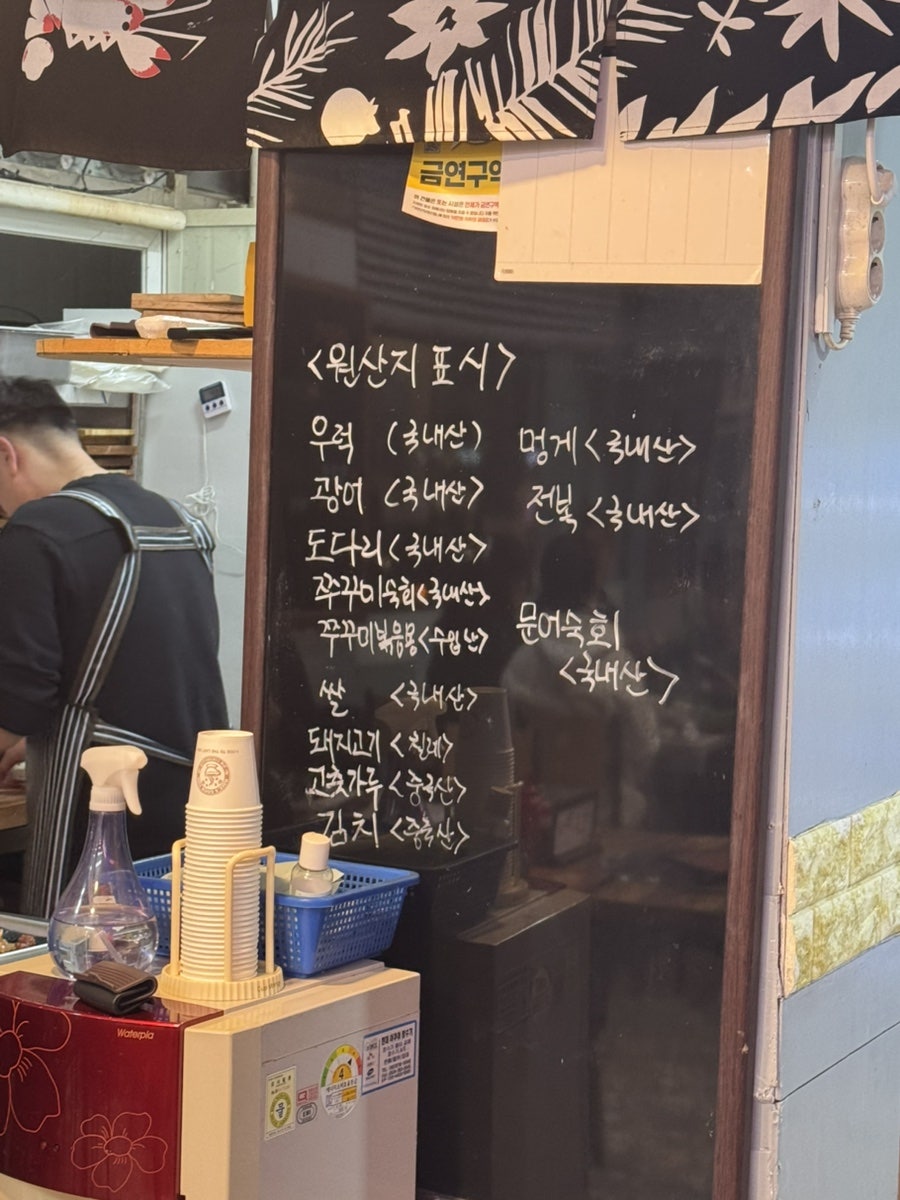 금연구역
<원산지 표시>
우럭 (국내산)
광어 (국내산>
도다리 <국내산>
쭈꾸미숙회<국내산>
쭈꾸미볶음용<수입산>
쌀 <국내산>
돼지고기 <칠레>
고춧가루 <중국산>
김치 <중국산>
멍게 <국내산>
전복 <국내산>
문어숙회
<국내산>
Waterpia
4